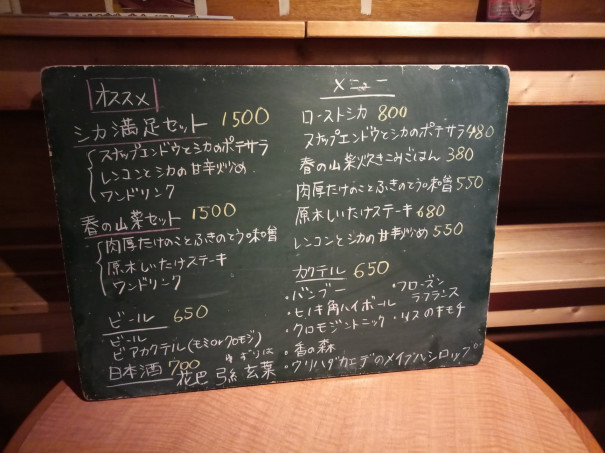 オススメ
シカ満足セット 1500
スナップエンドウとシカのポテサラ
レンコンとシカの甘辛炒め
ワンドリンク
春の山菜セット 1500
肉厚たけのことふきのとう味噌
原木しいたけステーキ
ワンドリンク
ビール 650
ビール
ビアカクテル(モミorクロモジ)
日本酒 700
花巴 弓絃 玄菜
メニュー
ローストシカ 800
スナップエンドウとシカのポテサラ 480
春の山菜炊きこみごはん 380
肉厚たけのことふきのとう味噌 550
原木しいたけステーキ 680
レンコンとシカの甘辛炒め 550
カクテル 650
・バンブー
・フローズンラフランス
・ヒノキ角ハイボール
・クロモジトニック
・リスのキモチ
・香の森
・ウリハダカエデのメイプルシロップ